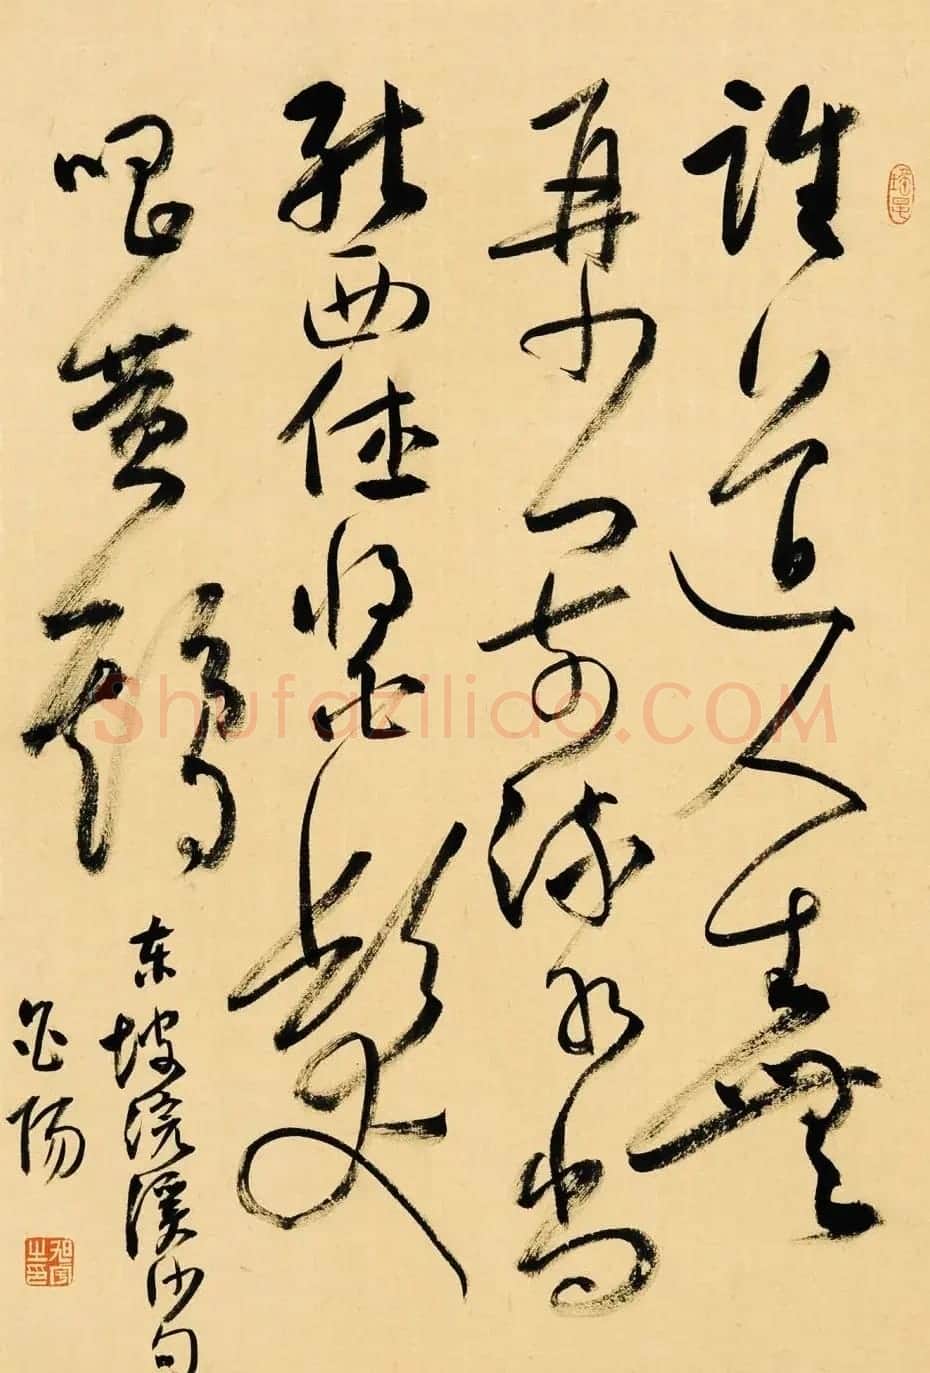 誰道人生無
再少门前流水尚
能西休将白髮
唱黄鷄
东坡浣溪沙句
阳
Shufaziliao.COM